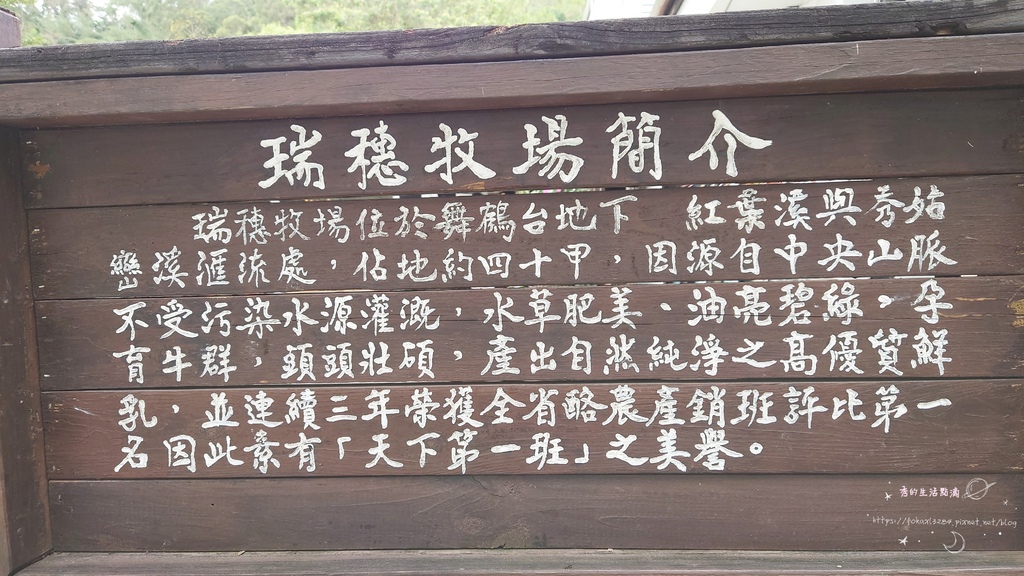 瑞穗牧場簡介
瑞穗牧場位於舞鶴台地下 紅葉溪與秀姑
巒溪滙流處，佔地約四十甲，因源自中央山脈
不受污染水源灌溉，水草肥美、油亮碧綠。孕
育牛群，頭頭壯碩，產出自然純淨之高優質鮮
乳，並連續三年榮獲全省酪農產銷班評比第一
名因此素有「天下第一班」之美譽。
秀的生活點滴